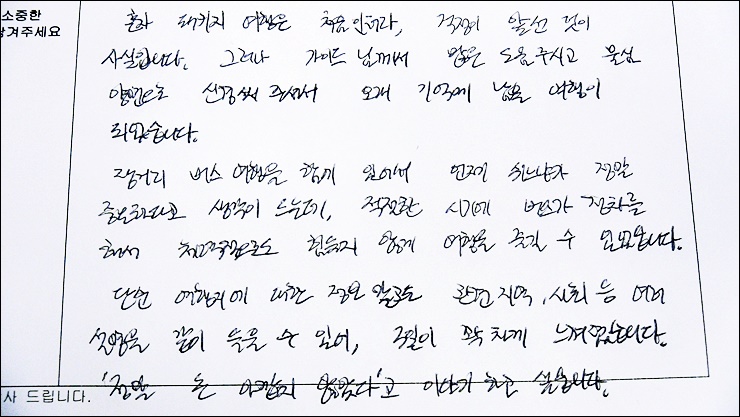 소중한
남겨주세요
혼자 패키지 여행은 처음인데라, 걱정이 앞선 것이
사실입니다. 그러나 가이드님께서 많은 도움주시고 물심
양면으로 신경써 주셔서 오래 기억에 남을 여행이
되었습니다.
장거리 버스 여행을 함에 있어서 언제 쉬느냐가 정말
중요하다고 생각이 드는데, 적절한 시기에 버스가 정차를
해서 체력적으로도 힘들지 않게 여행을 즐길 수 있었습니다.
단순 여행지에 대한 정보 말고도 관련 지역, 사회 등 여러
설명을 같이 들을 수 있어, 3일이 꽉 차게 느껴졌습니다.
'정말 돈 아깝지 않았다'고 이야기 하고 싶습니다.
사 드립니다.